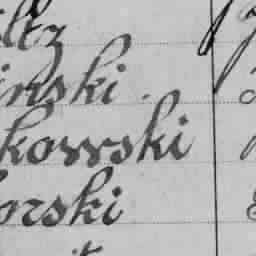 ltz
inski
kowski
orski